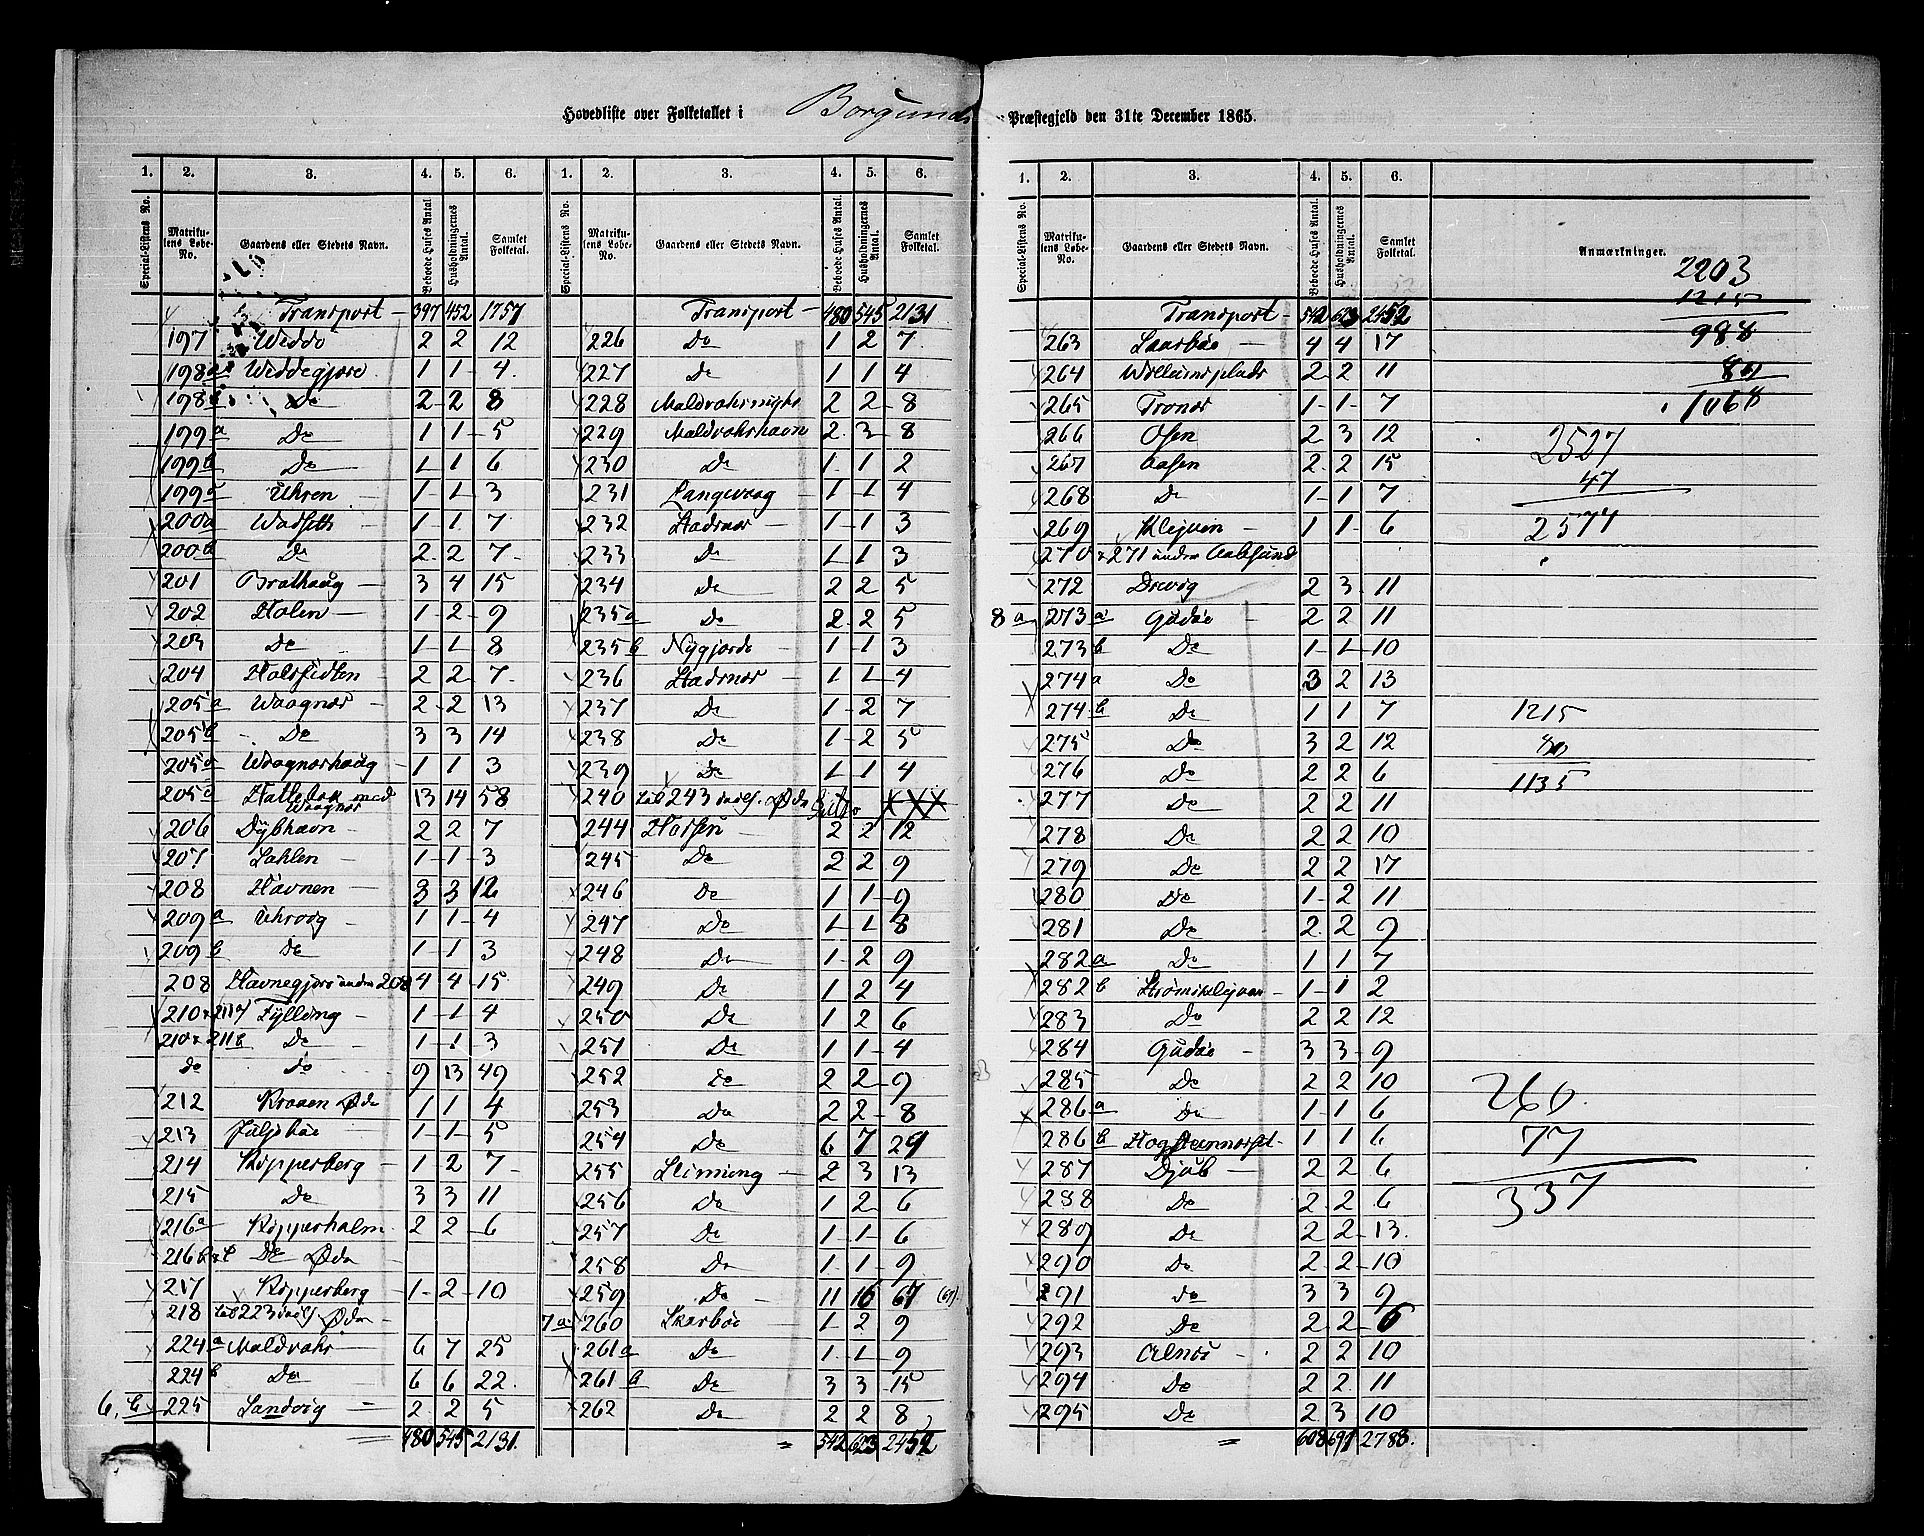 Hovedliste over Folketallet i Borgunds Præstegjeld den 31te December 1865.
1. 2. 3. 4. 5. 6. 1. 2. 3. 4. 5. 6.
Special-Listens No. Matrikulens Løbe-No. Gaardens eller Stedets Navn. Beboede Huses Antal. Husholdningernes Antal. Samlet Folketal. Special-Listens No. Matrikulens Løbe-No. Gaardens eller Stedets Navn. Beboede Huses Antal. Husholdningernes Antal. Samlet Folketal.
Transport 397 452 1757
197 Weddo 2 2 12
198a Weddegjære 1 1 4
198b Do 2 2 8
199a Do 1 1 5
199b Do 1 1 6
199c Uhren 1 1 3
200a Wadseth 1 1 7
200b Do 2 2 7
201 Brathaug 3 4 15
202 Holen 1 2 9
203 Do 1 1 8
204 Holsfidlen 2 2 7
205a Waagnæs 2 2 13
205b Do 3 3 14
205c Waagnæshaug 1 1 3
205d Hattebak med Waagnæs 13 14 58
206 Dybhavn 2 2 7
207 Sahlen 1 1 3
208 Havnen 3 3 12
209a Uhrvaag 1 1 4
209b Do 1 1 3
208 Havnegjære under 208 4 4 15
210 & 211a Fylling 1 1 4
210 & 211b Do 1 1 3
do do 9 13 49
212 Kraaen Øde 1 1 4
213 Juljebøe 1 1 5
214 Kipperberg 1 2 7
215 Do 3 3 11
216a Kipperholm 2 2 6
216b & c Do Øde
217 Kipperberg 1 2 10
218 til 223 incl. Øde
224a Maldvahr 6 7 25
224b Do 6 6 22
6, b 225 Sandvig 2 2 5
480 545 2131
Transport 480 545 2131
226 Do 1 2 7
227 Do 1 1 4
228 Maldvahrmight 2 2 8
229 Maldvahrhavn 2 3 8
230 Do 1 1 2
231 Langevaag 1 1 4
232 Stadsnæs 1 1 3
233 Do 1 1 3
234 Do 2 2 5
235a Do 2 2 5
235b Nygjorde 1 1 3
236 Stadsnæs 1 1 4
237 Do 1 2 7
238 Do 1 2 5
239 Do 1 1 4
240 til 243 incl. Øde
244 Horsen 2 2 12
245 Do 2 2 9
246 Do 1 1 9
247 Do 1 1 8
248 Do 1 2 9
249 Do 1 2 4
250 Do 1 2 6
251 Do 1 1 4
252 Do 2 2 9
253 Do 2 2 8
254 Do 6 7 29
255 Slinning 2 3 13
256 Do 1 2 6
257 Do 1 1 6
258 Do 1 1 9
259 Do 11 16 67 (67).
7a 260 Skarbøe 1 2 9
261a Do 1 1 9
261b Do 3 3 15
262 Do 2 2 8
542 623 2452
1. 2. 3. 4. 5. 6.
Special-Listens No. Matrikulens Løbe-No. Gaardens eller Stedets Navn. Beboede Huses Antal. Husholdningernes Antal. Samlet Folketal. Anmærkninger.
Transport 542 623 2452
263 Skarbøe 4 4 17
264 Willumsplads 2 2 11
265 Tronæs 1 1 7
266 Osen 2 3 12
267 Aasen 2 2 15
268 Do 1 1 7
269 Klejven 1 1 6
270 & 271 under Aalesund
272 Drevig 2 3 11
8a 273a Gudøe 2 2 11
273b Do 1 1 10
274a Do 3 2 13
274b Do 1 1 7
275 Do 3 2 12
276 Do 2 2 6
277 Do 2 2 11
278 Do 2 2 10
279 Do 2 2 17
280 Do 1 2 11
281 Do 2 2 9
282a Do 1 1 7
282b Strømsklejven 1 1 2
283 Do 2 2 12
284 Gudøe 3 3 9
285 Do 2 2 10
286a Do 1 1 6
286b 1 1 6
287 Djub 2 2 6
288 Do 2 2 6
289 Do 2 2 13
290 Do 2 2 10
291 do 3 3 9
292 Do 2 2 6
293 Alnøe 2 2 10
294 Do 2 2 11
295 Do 2 3 10
608 691 2788.
2203
1215
988
80
1068
2527
47
2577
1215
80
1135
260
77
337